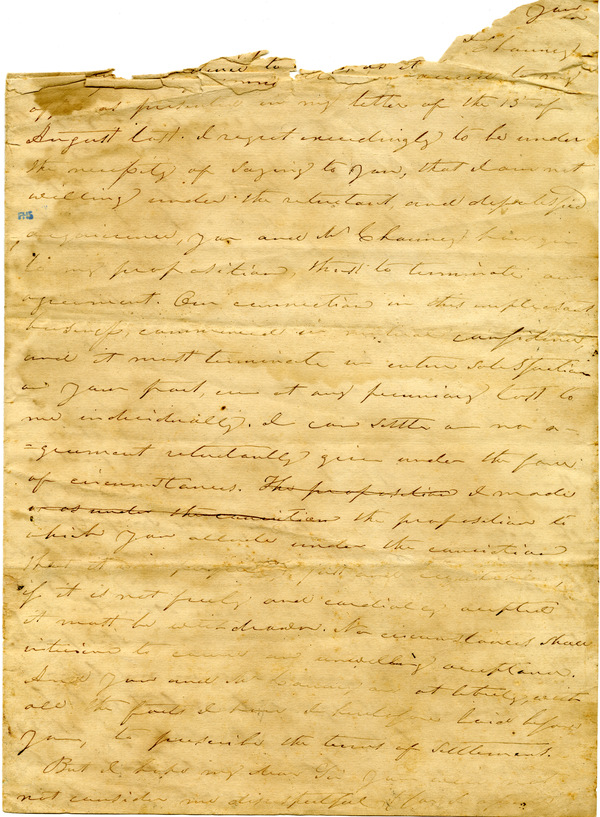 your
Chauncey
to as it
my to my
offer as presented in my letter of the 15 of
August last. I regret exceedingly to be under
the necessity of saying to you, that I am not
willing under the reluctant, and dissatisfied
acquiescence, you and Mr Chauncey have given
to my proposition, thus to terminate our
agreement. Our connection in this unpleasant
business, commenced in mutual confidence,
and it must terminate in entire satisfaction
on your part, even at any pecuniary loss to
me individually. I can settle on no a-
-greement reluctantly given under the force
of circumstances. The proposition I made
or as under the conviction the proposition to
which you allude under the conviction
that it just and
if it is not freely and cordially accepted
it must be withdrawn. No circumstances shall
intervene to an unwilling acceptance.
And you and Mr Chauncey are at liberty, with
all the facts I have heretofore laid before
you, to prescribe the terms of settlement.
But I hope my dear Sir you
not consider me disrespectful if